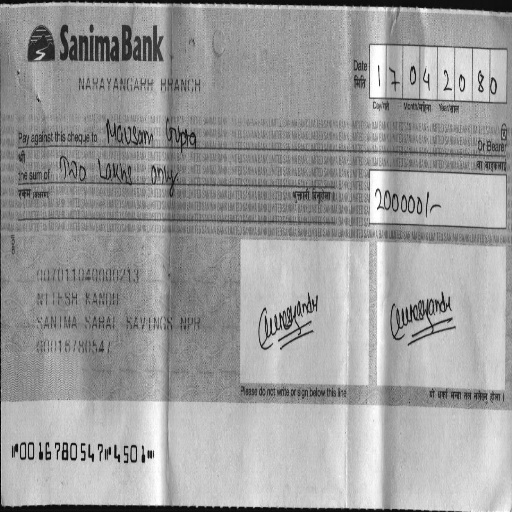 Sanima Bank
NARAYANGARH BRANCH
Date
मिति
17042080
Day/गते Month/महिना Year/साल
Pay against this cheque to Mausam Gupta
Or Bearer
श्री
वा वाहकलाई
the sum of Two Lakhs only
रकम (अक्षरमा)
भुक्तानी दिनुहोला ।
200000/-
007011040000213
NITESH KANDU
SANIMA SARAL SAVINGS NPR
00016780547
Please do not write or sign below this line
⑈0016780547⑈4501⑈